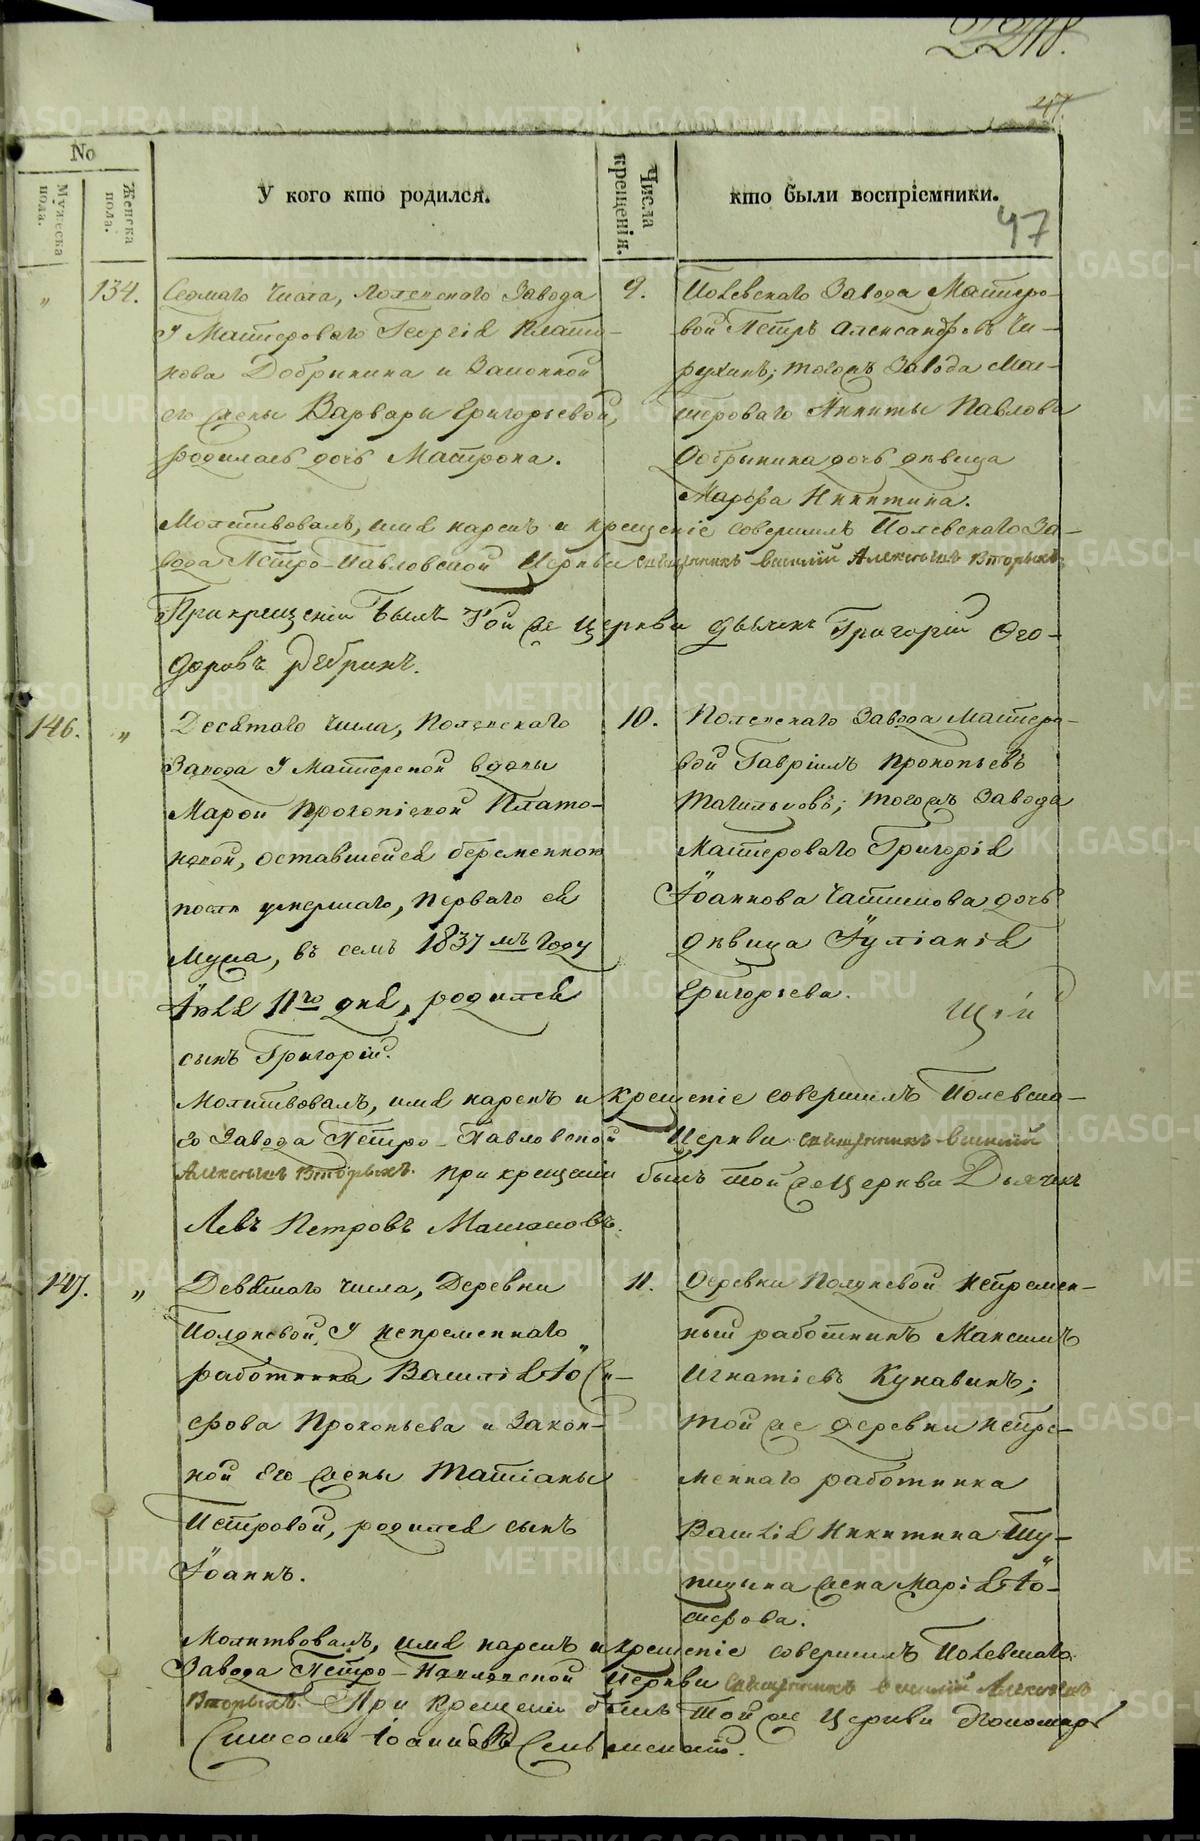 47
No
Мужеска пола.
Женска пола.
У кого кто родился.
Числа крещенія.
кто были воспріемники.
47
„ 134. Седмаго числа, Полевскаго Завода
У Мастероваго Георгія Плато-
нова Добрынина и Законной
его жены Варвары Григорьевой,
родилась дочь Матрона.
9. Полевскаго Завода Мастеро-
вой Петръ Александровъ
тогожъ Завода Мас-
тероваго Никиты Павлова
Добрынина дочь девица
Марфа Никитина.
Молитвовалъ, имя нарекъ и крещеніе совершилъ Полевскаго За-
вода Петро-Павловской Церкви священникъ Василій Алексіевъ Вторыхъ
При крещеніи былъ Той же церкви дьячекъ Григорій Ѳео-
доровъ
146. „ Десятаго числа, Полевскаго
Завода У Мастерской вдовы
Марѳы Прокопіевой Плато-
новой, оставшейся беременною
после умершаго, перваго ея
Мужа, въ семъ 1837мъ году
11го дня, родился
сынъ Григорій.
10. Полевскаго Завода Мастеро-
вой Гавріилъ Прокопьевъ
тогожъ Завода
Мастероваго Григорія
Іоаннова дочь
девица Іуліанія
Григорьева.
щій
Молитвовалъ, имя нарекъ и крещеніе совершилъ Полевска-
го Завода Петро-Павловской Церкви священникъ Василій
Алексіевъ Вторыхъ. При крещеніи былъ той же Церкви Дьячекъ
Левъ Петровъ
147. „ Девятаго числа, Деревни
Полдневой, У непременнаго
работника Василія Іоси-
фова Прокопьева и Закон-
ной Его жены Татіаны
Петровой, родился сынъ
Іоаннъ.
11. Деревни Полдневой непремен-
ный работникъ Максимъ
Игнатіевъ Кунавинъ;
той же деревни непре-
меннаго работника
Василія Никитина Шу-
пицына жена Марія Іо-
сифова.
Молитвовалъ, имя нарекъ и крещеніе совершилъ Полевскаго
Завода Петро-Павловской Церкви священникъ Василій Алексіевъ
Вторыхъ. При Крещеніи былъ той же Церкви Пономарь
Симеонъ Іоанновъ